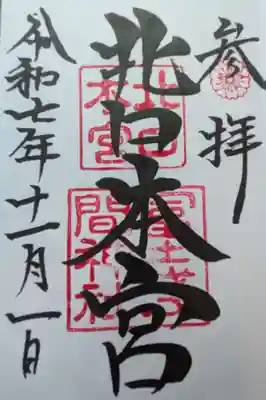 参拝
北口本宮
令和七年十一月一日
北口
本宮
冨士浅
間神社